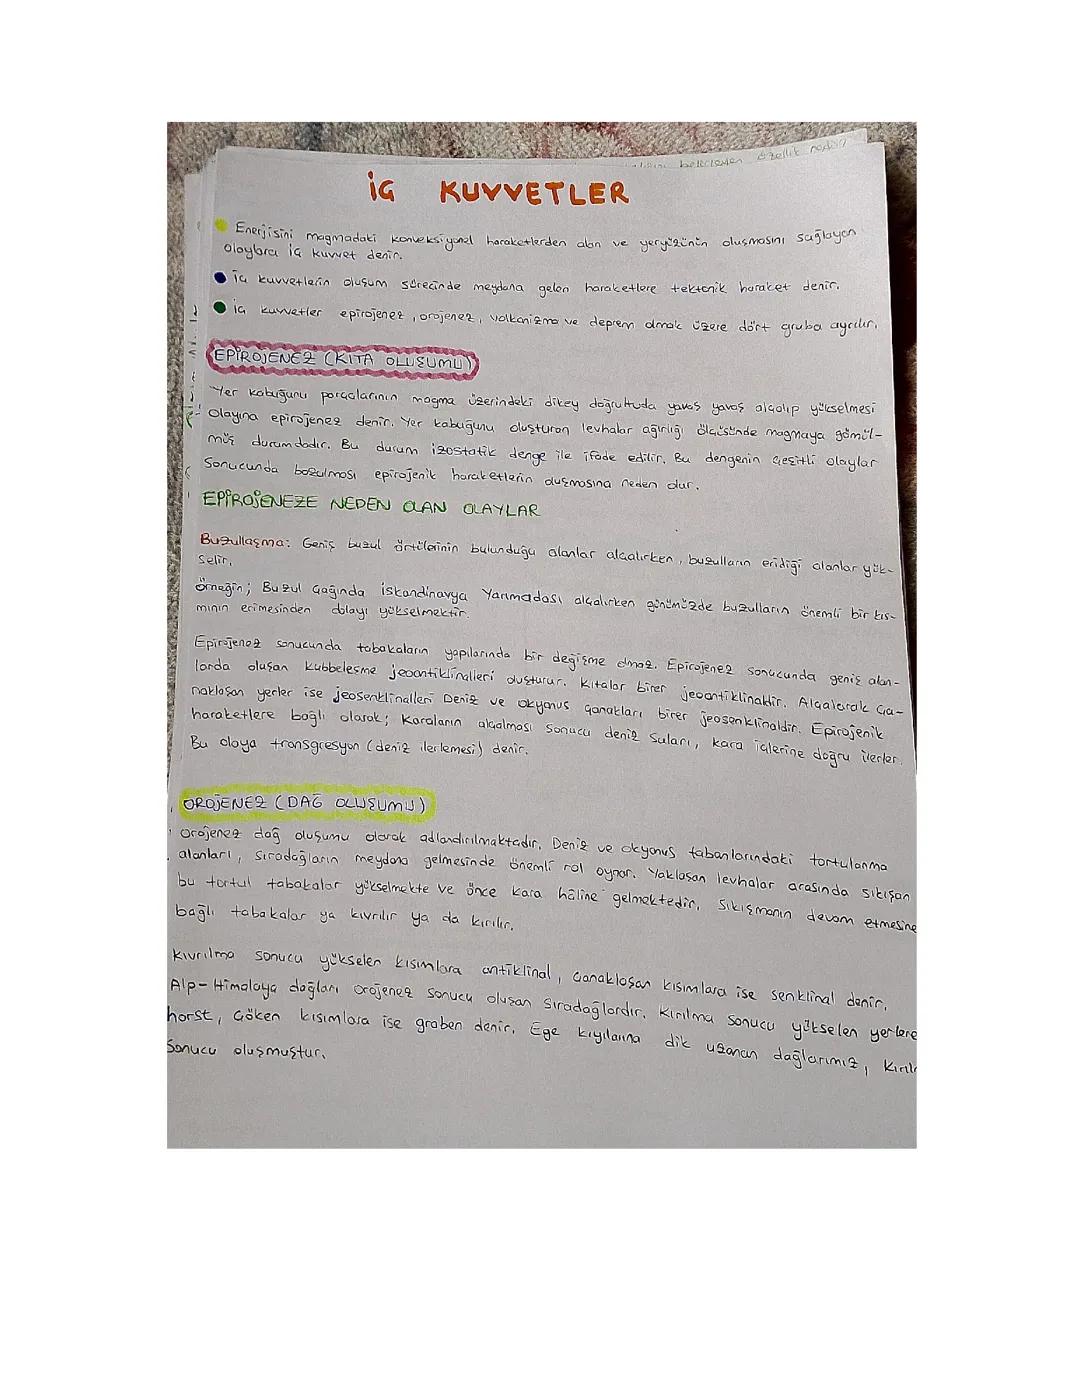 belirleyen özellik nedir?
İÇ KUVVETLER
Enerjisini magmadaki konveksiyonel haraketlerden alan ve yeryüzünün oluşmasını sağlayan
olaylara iç kuvvet denir.
İç kuvvetlerin oluşum sürecinde meydana gelen haraketlere tektonik haraket denir.
İç kuvvetler epirojenez, orojenez, volkanizma ve deprem olmak üzere dört gruba ayrılır.
EPİROJENEZ (KITA OLUŞUMU)
Yer kabuğunu parçalarının magma üzerindeki dikey doğrultuda yavaş yavaş alçalıp yükselmesi
olayına epirojenez denir. Yer kabuğunu oluşturan levhalar ağırlığı ölçüsünde magmaya gömül-
müş durumdadır. Bu durum izostatik denge ile ifade edilir. Bu dengenin çeşitli olaylar
sonucunda bozulması epirojenik haraketlerin oluşmasına neden olur.
EPİROJENEZE NEDEN OLAN OLAYLAR
Buzullaşma: Geniş buzul örtülerinin bulunduğu alanlar alçalırken, buzulların eridiği alanlar yük-
selir.
Örneğin; Buzul çağında İskandinavya Yarımadası alçalırken günümüzde buzulların önemli bir kıs-
mının erimesinden dolayı yükselmektir.
Epirojenez sonucunda tabakaların yapılarında bir değişme olmaz. Epirojenez sonucunda geniş alan-
larda oluşan kubbeleşme jeoantiklinalleri oluşturur. Kıtalar birer jeoantiklinaldir. Alçalarak ça-
naklaşan yerler ise jeosenklinalleri Deniz ve okyonus çanakları birer jeosenklinaldir. Epirojenik
haraketlere bağlı olarak; Karaların alçalması sonucu deniz suları, kara içlerine doğru ilerler.
Bu olaya transgresyon (deniz ilerlemesi) denir.
OROJENEZ (DAĞ OLUŞUMU)
Orojenez dağ oluşumu olarak adlandırılmaktadır. Deniz ve okyonus tabanlarındaki tortulanma
alanları, sıradağların meydana gelmesinde önemli rol oynar. Yaklaşan levhalar arasında sıkışan
bu tortul tabakalar yükselmekte ve önce kara hâline gelmektedir. Sıkışmanın devam etmesine
bağlı tabakalar ya kıvrılır ya da kırılır.
Kıvrılma sonucu yükselen kısımlara antiklinal, çanaklaşan kısımlara ise senklinal denir.
Alp-Himalaya dağları orojenez sonucu oluşan sıradağlardır. Kırılma sonucu yükselen yerlere
horst, çöken kısımlara ise graben denir. Ege kıyılarına dik uzanan dağlarımız, kırıl
sonucu oluşmuştur.